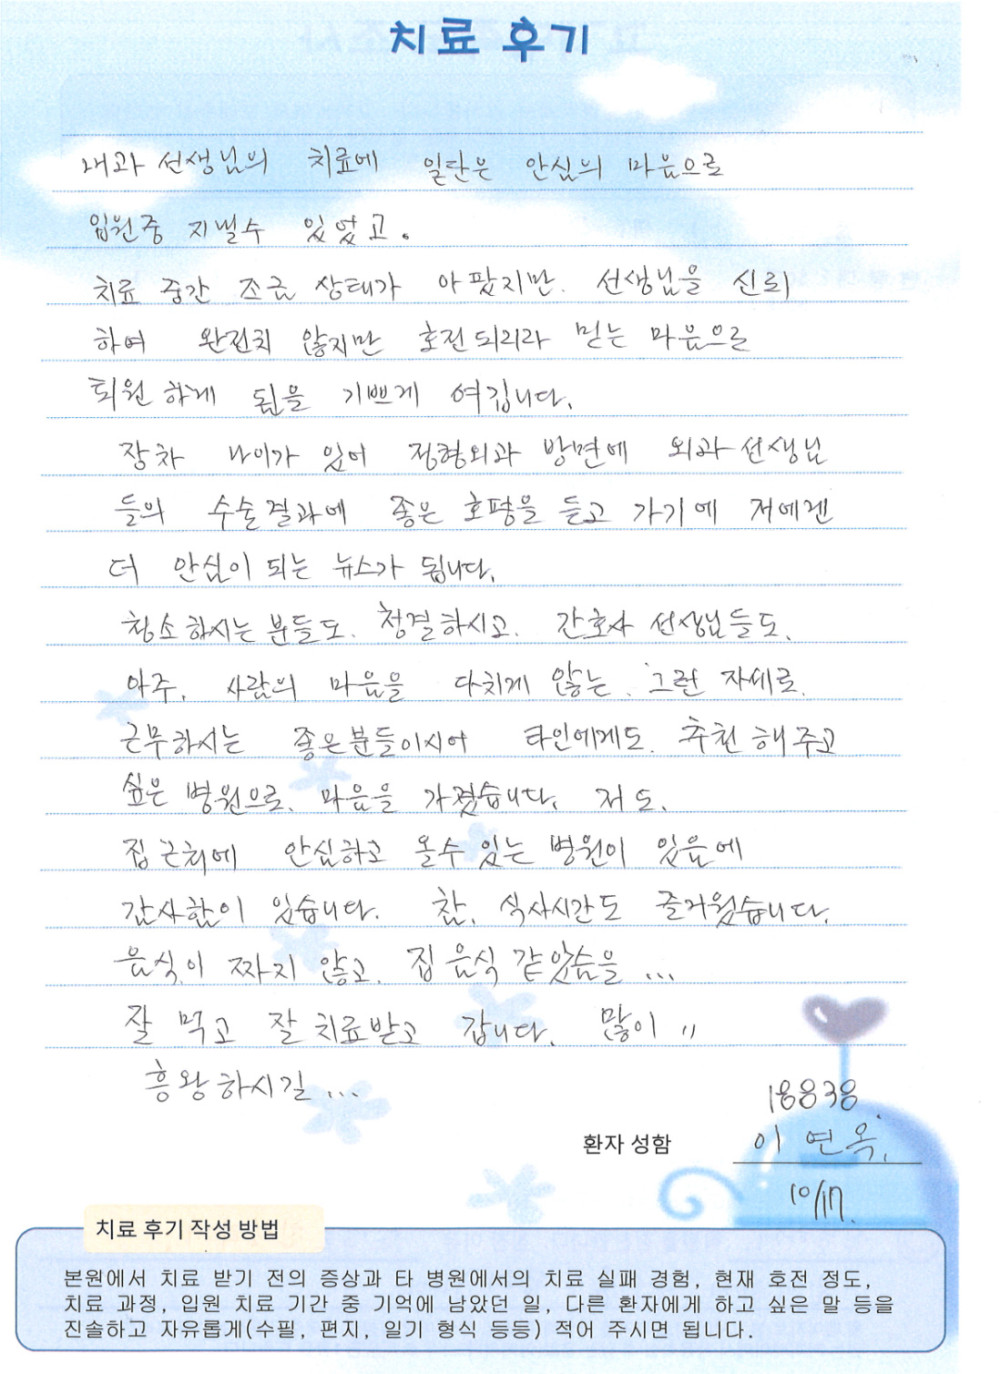 치료 후기
내과 선생님의 치료에 일단은 안심의 마음으로
입원중 지낼수 있었고.
치료 중간 조금 상태가 아팠지만. 선생님을 신뢰
하여 완전치 않지만 호전되리라 믿는 마음으로
퇴원 하게 됨을 기쁘게 여깁니다.
장차 나이가 있어 정형외과 방면에 외과선생님
들의 수술결과에 좋은 호평을 듣고 가기에 저에겐
더 안심이 되는 뉴스가 됩니다.
청소하시는 분들도. 청결하시고. 간호사 선생님들도.
아주. 사람의 마음을 다치게 않는. 그런 자세로.
근무하시는 좋은분들이시어 타인에게도. 추천 해 주고
싶은 병원으로. 마음을 가졌습니다. 저도.
집근처에 안심하고 올수 있는 병원이 있음에
감사함이 있습니다. 참. 식사시간도 즐거웠습니다.
음식이 짜지 않고. 집음식 같았슴을 ...
잘 먹고 잘 치료받고 갑니다. 많이 〃
흥왕하시길 ...
18838.
환자 성함 이연옥.
10/17.
치료 후기 작성 방법
본원에서 치료 받기 전의 증상과 타 병원에서의 치료 실패 경험, 현재 호전 정도,
치료 과정, 입원 치료 기간 중 기억에 남았던 일, 다른 환자에게 하고 싶은 말 등을
진솔하고 자유롭게(수필, 편지, 일기 형식 등등) 적어 주시면 됩니다.